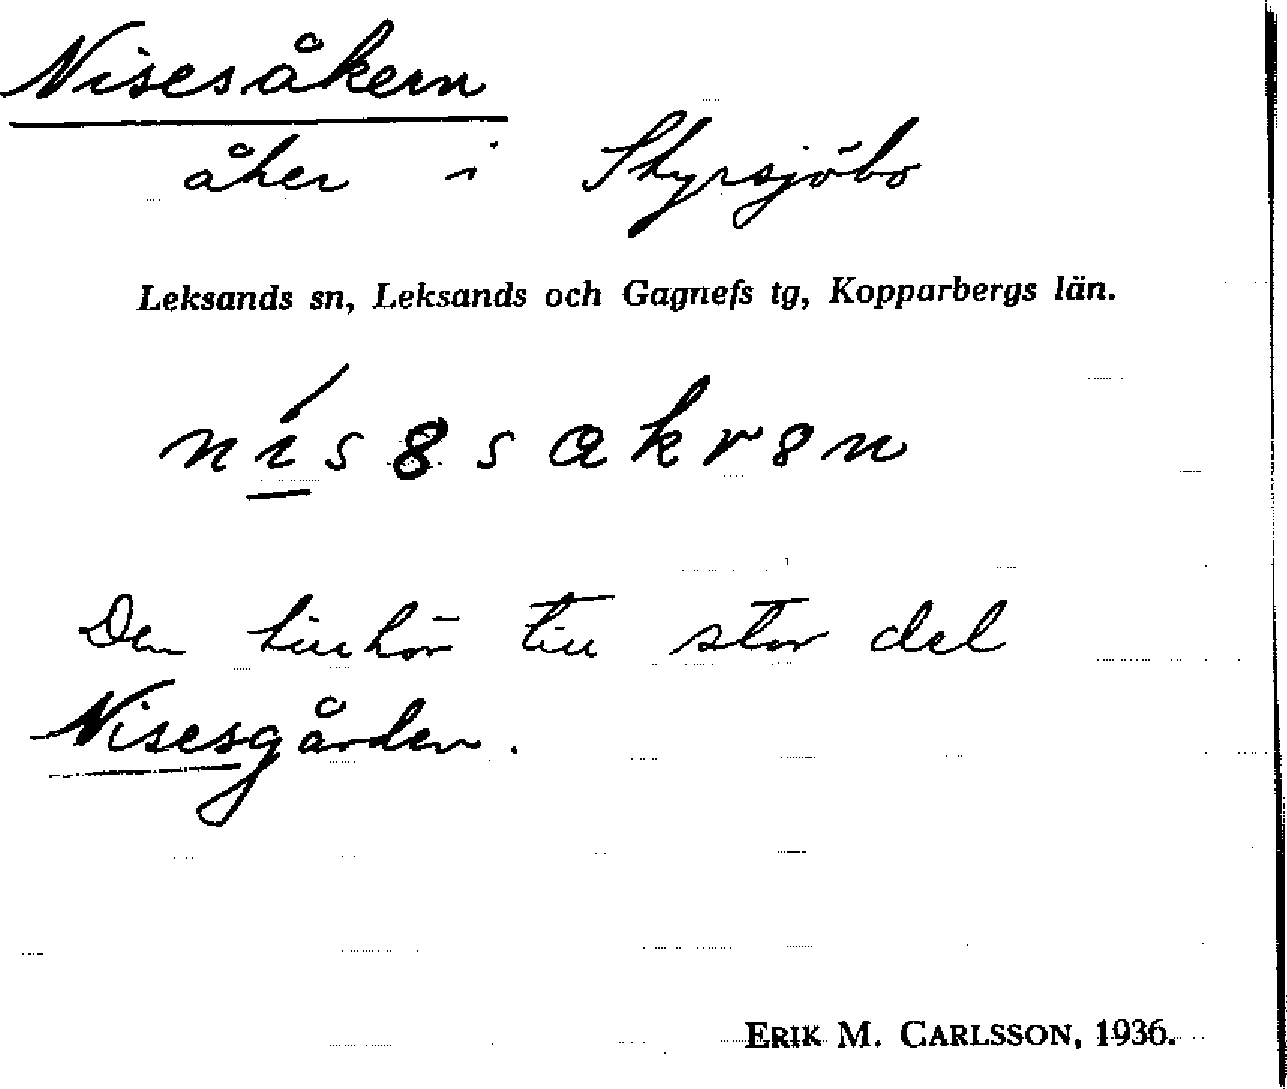 Nisesåkern
åker i Styrsjöbo
Leksands sn, Leksands och Gagnefs tg, Kopparbergs län.
ní̲sɘsakrɘn
Den tillhör till stor del
Nisesgården.
ERIK M. CARLSSON, 1936.